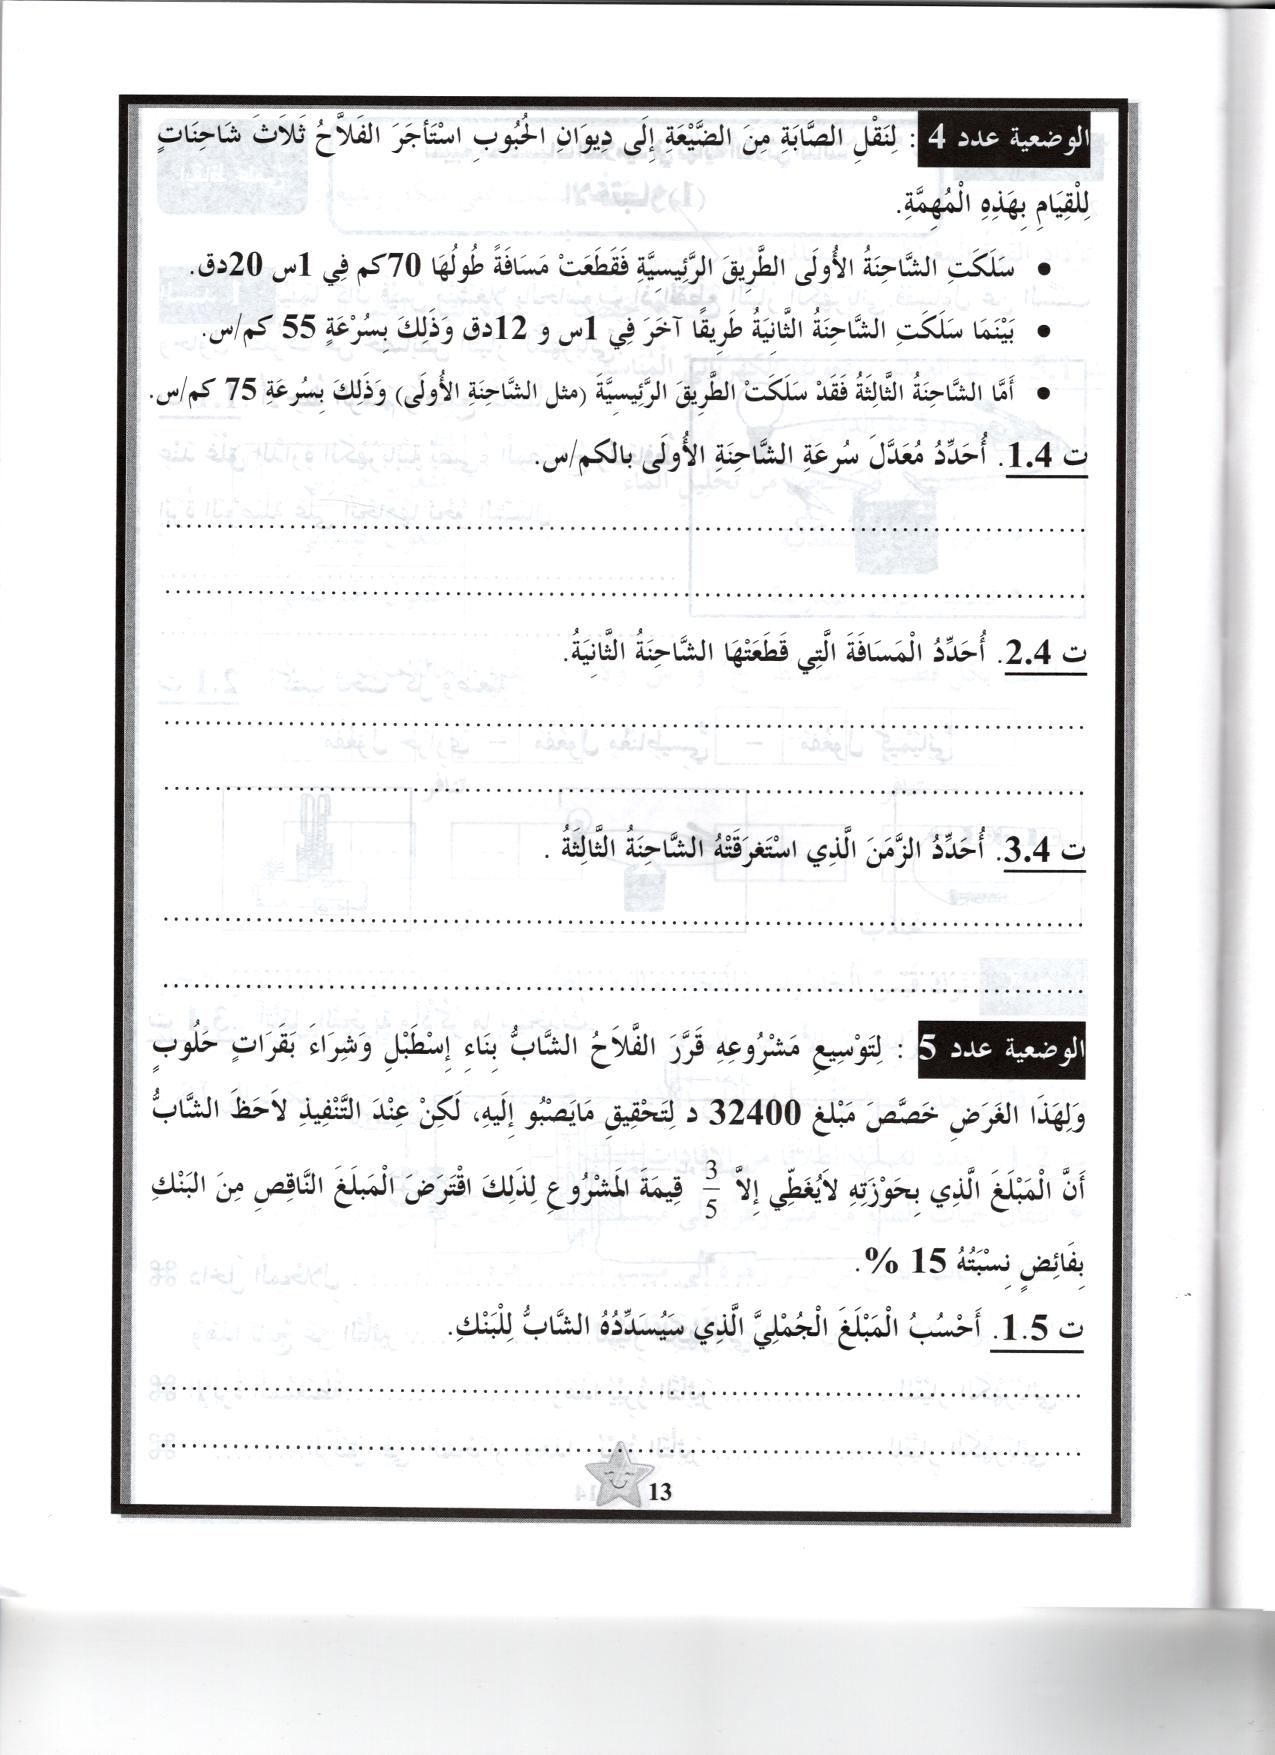 الوضعية عدد 4 : لِنَقْلِ الصَّابَةِ مِنَ الضَّيْعَةِ إِلَى دِيوَانِ الحُبُوبِ اسْتَأجَرَ الفَلاَّحُ ثَلاَثَ شَاحِنَاتٍ
لِلْقِيَامِ بِهَذِهِ الْمُهِمَّةِ.
• سَلَكَتِ الشَّاحِنَةُ الأُولَى الطَّرِيقَ الرَّئِيسِيَّةِ فَقَطَعَتْ مَسَافَةً طُولُهَا 70كم فِي 1س 20دق.
• بَيْنَمَا سَلَكَتِ الشَّاحِنَةُ الثَّانِيَةُ طَرِيقًا آخَرَ فِي 1س و 12دق وَذَلِكَ بِسُرْعَةٍ 55 كم/س.
• أَمَّا الشَّاحِنَةُ الثَّالِثَةُ فَقَدْ سَلَكَتْ الطَّرِيقَ الرَّئِيسِيَّةَ (مثل الشَّاحِنَةِ الأُولَى) وَذَلِكَ بِسُرعَةِ 75 كم/س.
ت 1.4. أُحَدِّدُ مُعَدَّلَ سُرعَةِ الشَّاحِنَةِ الأُولَى بالكم/س.
ت 2.4. أُحَدِّدُ الْمَسَافَةَ الَّتِي قَطَعَتْهَا الشَّاحِنَةُ الثَّانِيَةُ.
ت 3.4. أُحَدِّدُ الزَّمَنَ الَّذِي اسْتَغرَقَتْهُ الشَّاحِنَةُ الثَّالِثَةُ .
الوضعية عدد 5 : لِتَوْسِيعِ مَشْرُوعِهِ قَرَّرَ الفَلاَحُ الشَّابُّ بِنَاءِ إِسْطَبْلٍ وَشِرَاءَ بَقَرَاتٍ حَلُوبٍ
وَلِهَذَا الغَرَضِ خَصَّصَ مَبْلغ 32400 د لِتَحْقِيقِ مَايَصْبُو إِلَيهِ، لَكِنْ عِنْدَ التَّنْفِيذِ لاَحَظَ الشَّابُّ
أَنَّ الْمَبْلَغَ الَّذِي بِحَوْزَتِهِ لاَيُغَطِّي إِلاَّ 3/5 قِيمَةَ المَشْرُوعِ لِذَلِكَ اقْتَرَضَ الْمَبلَغَ النَّاقِصَ مِنَ البَنْكِ
بِفَائِضٍ نِسْبَتُهُ 15 %.
ت 1.5. أَحْسُبُ الْمَبْلَغَ الْجُمْلِيَّ الَّذِي سَيُسَدِّدُهُ الشَّابُّ لِلْبَنْكِ.
13